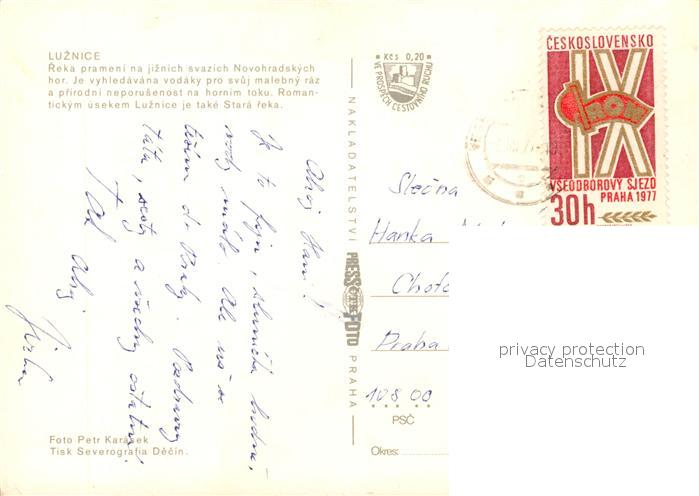 LUŽNICE
Řeka pramení na jižních svazích Novohradských
hor. Je vyhledávána vodáky pro svůj malebný ráz
a přírodní neporušenost na horním toku. Roman-
tickým úsekem Lužnice je také Stará řeka.
Ahoj Hani!
Je to fajn, sluníčka hodně,
vody málo. Ale už se
těším do Prahy. Pozdravuj
tátu, a všechny ostatní!
Ahoj
Jirka
Foto Petr Karásek
Tisk Severografia Děčín.
NAKLADATELSTVÍ PRESSFOTO PRAHA
Kčs 0,20
VE PROSPĚCH CESTOVNÍHO RUCHU
ČESKOSLOVENSKO
IX
ROH
VŠEODBOROVÝ SJEZD
PRAHA 1977
30h
Slečna
Hanka
Choto
Praha
108 00
PSČ
Okres:
privacy protection
Datenschutz